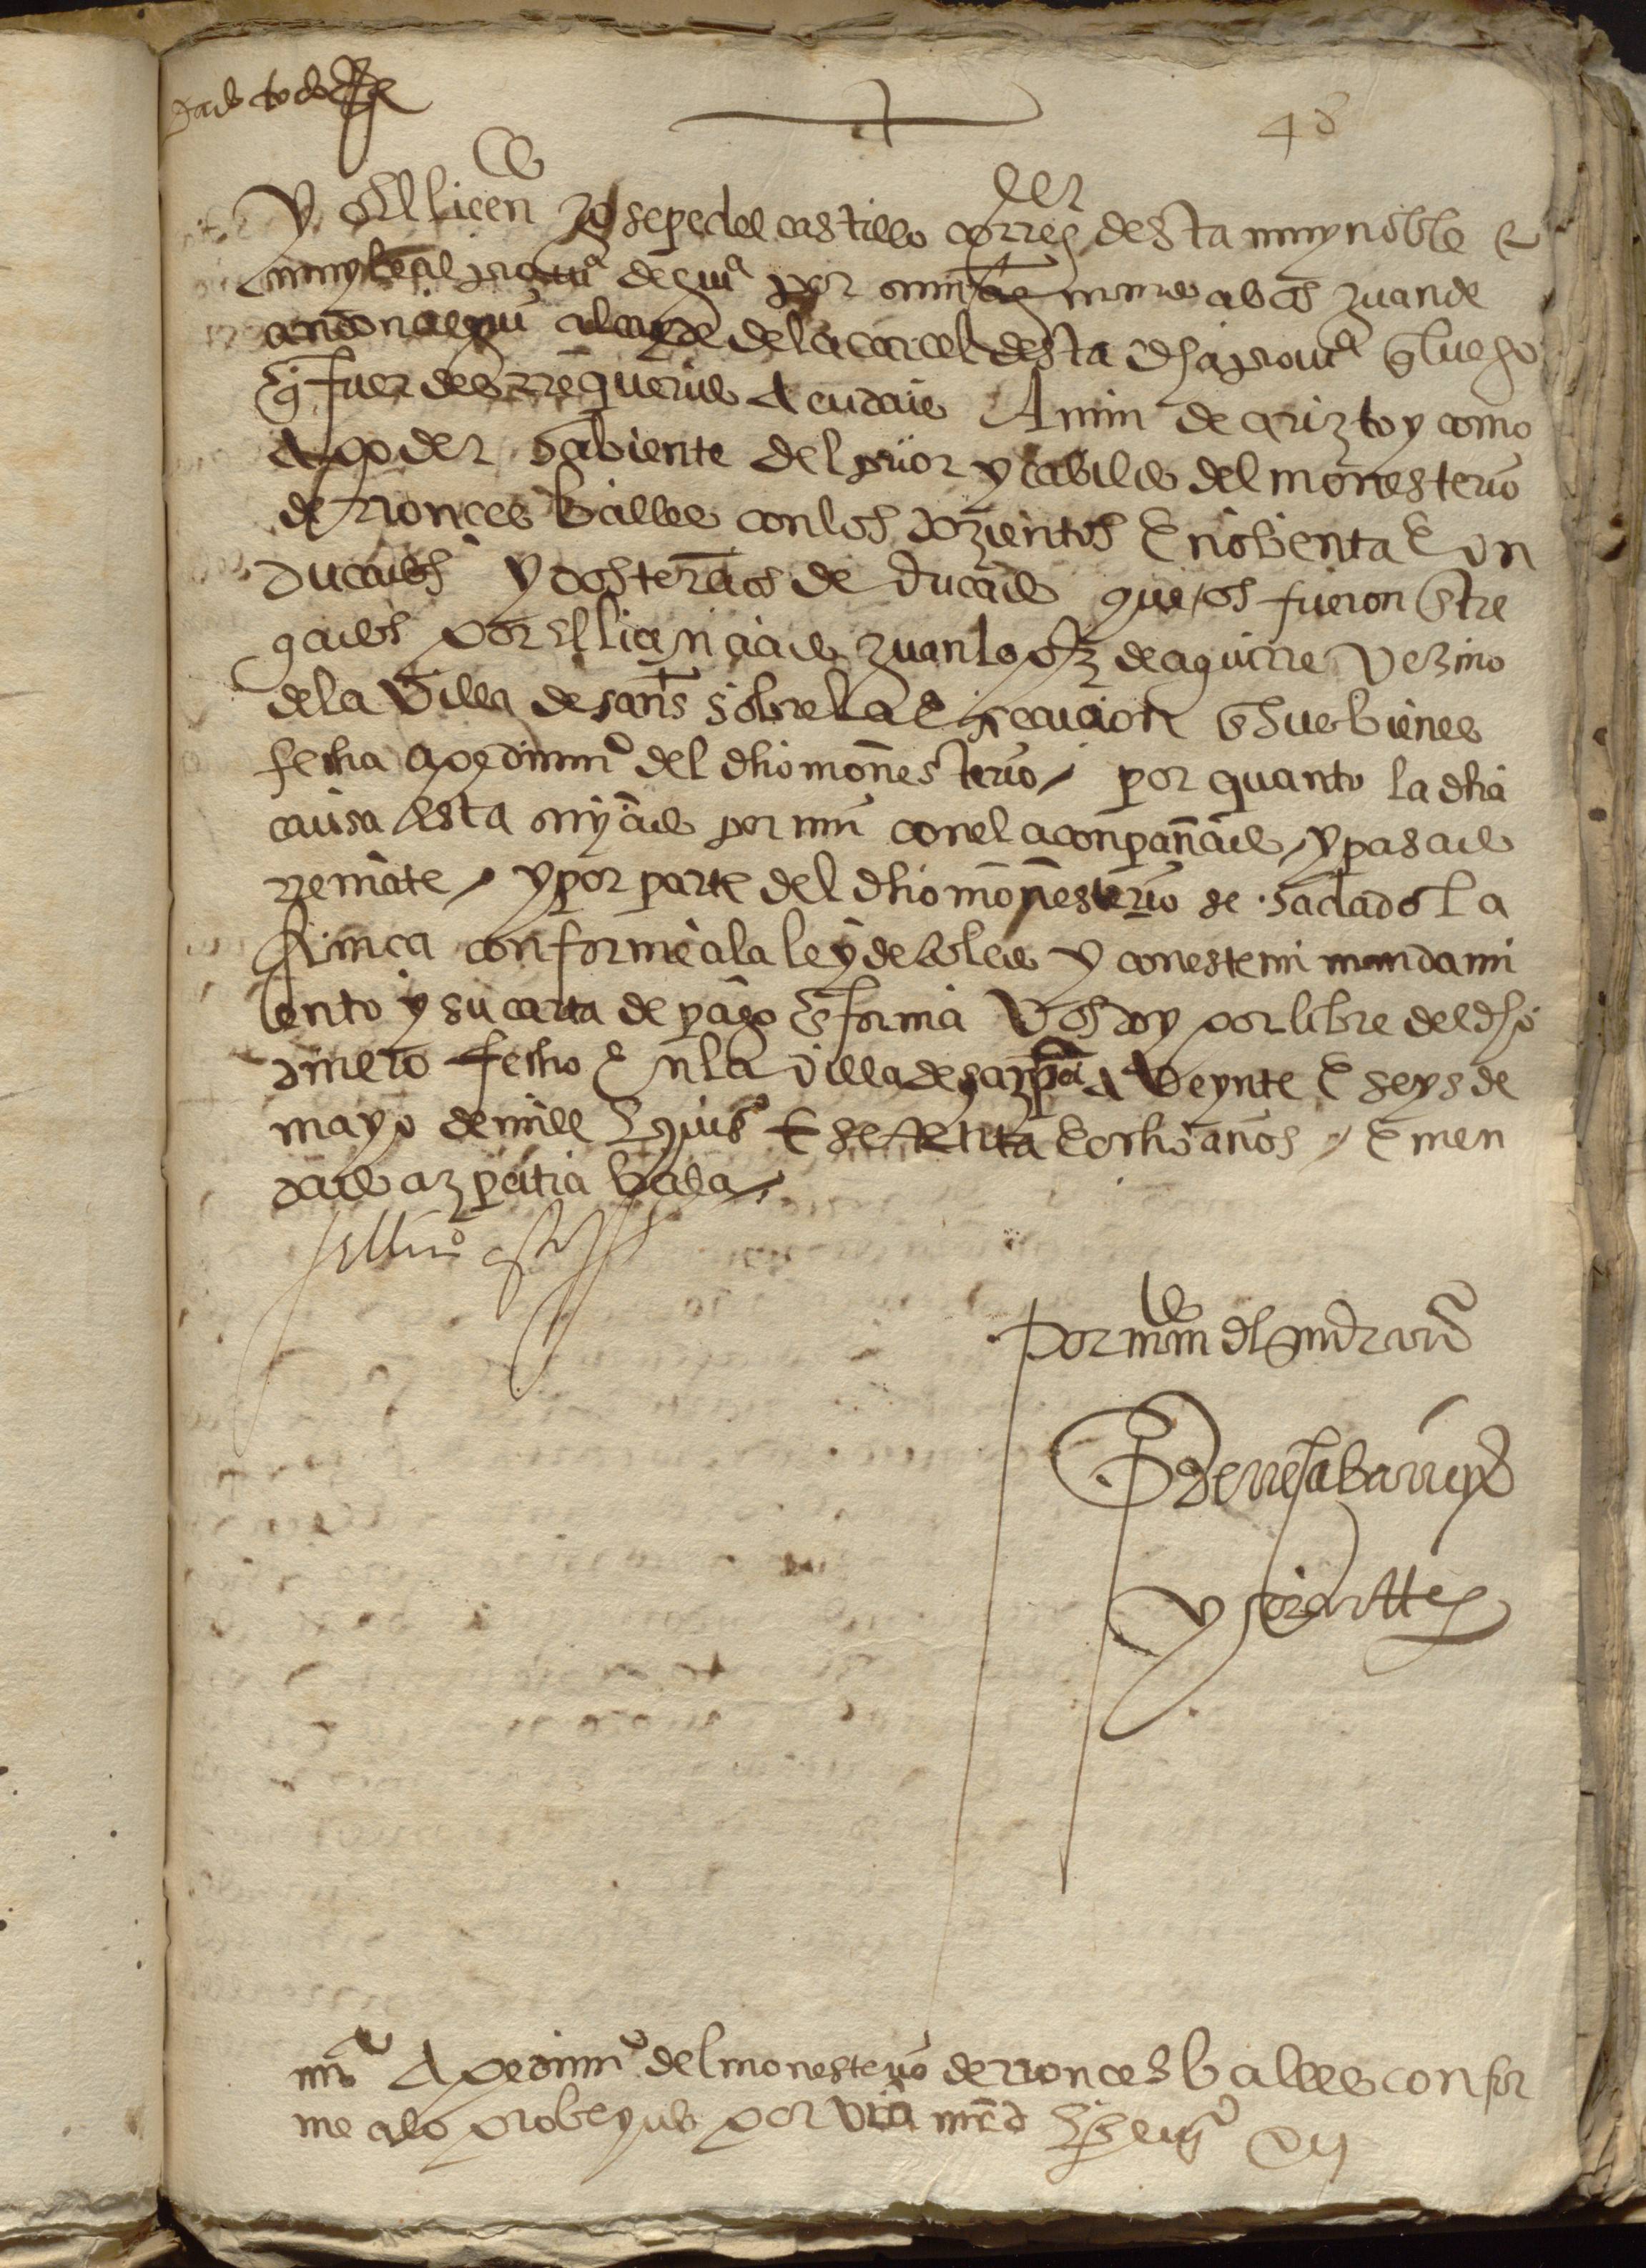 Dado todo
48
Yo el licen do Josepe del castillo corre or desta muy noble e
muy leal prouj a de gui a por mando a bos Juan de
andonaegui alcayde de la carcel desta dha prouj a q luego
q fuerdes rrequerido acudais A min de arizto y como
A poder dabiente del prior y cabildo del monesterio
de rronces balles con los dozientos E nobenta E un
ducados y dos terçios de ducado que os fueron Entre
gados por El liçençiado Juan lopez de aguirre Vezino
de la Villa de sant s sobre la Esecucion En sus bienes
fecha a pedimi o del dho monesterio / por quanto la dha
causa esta por mi con el aconpañado / y pasado
rremate / y por parte del dho monesterio se a dado La
fiança conforme a la ley de toledo y con este mi mandami
ento y su carta de pago En forma Vos doy por libre del dho
dinero fecho E n la Villa de azp a A Veynte E seys de
mayo de mill E quis E setenta E ocho años / E men
dado azpeitia bala /
El lic do
Por m do del s r corr or
P de
y
m o A pedimi o del monesterio de rronces balles confor
me a lo probeydo por vra m d